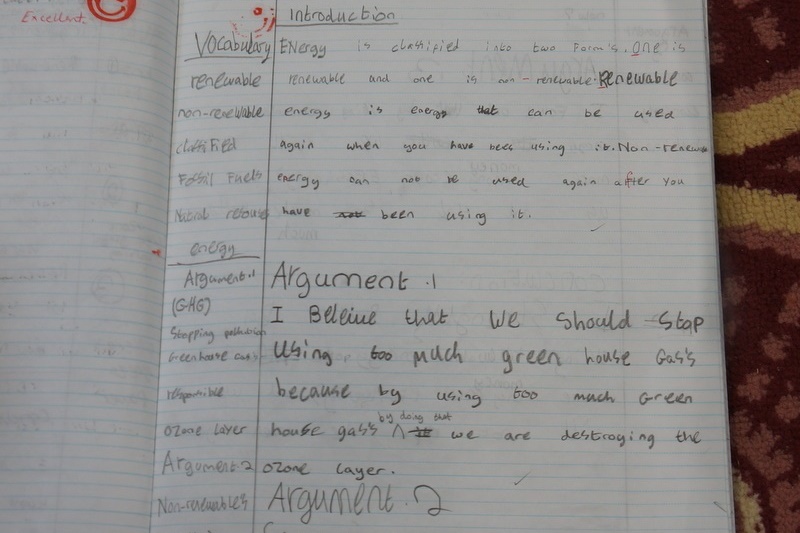 Excellent.
Introduction
Vocabulary
ENergy is classified into two Form's. One is
renewable
renewable and one is non-renewable. Renewable
non-renewable
energy is energy that can be used
classified
again when you have been using it. Non-renew
Fossil Fuels
energy can not be used again after you
Natural
have not been using it.
energy
Argument.1
Argument.1
(GHG)
I Beleive that we should stop
Stopping
using too much green house Gas's
Greenhouse Gas's
because by using too much Green
responsible
by doing that
house gas's we are destroying the
ozone Layer
ozone Layer.
Argument.2
Argument.2
Non-renewables